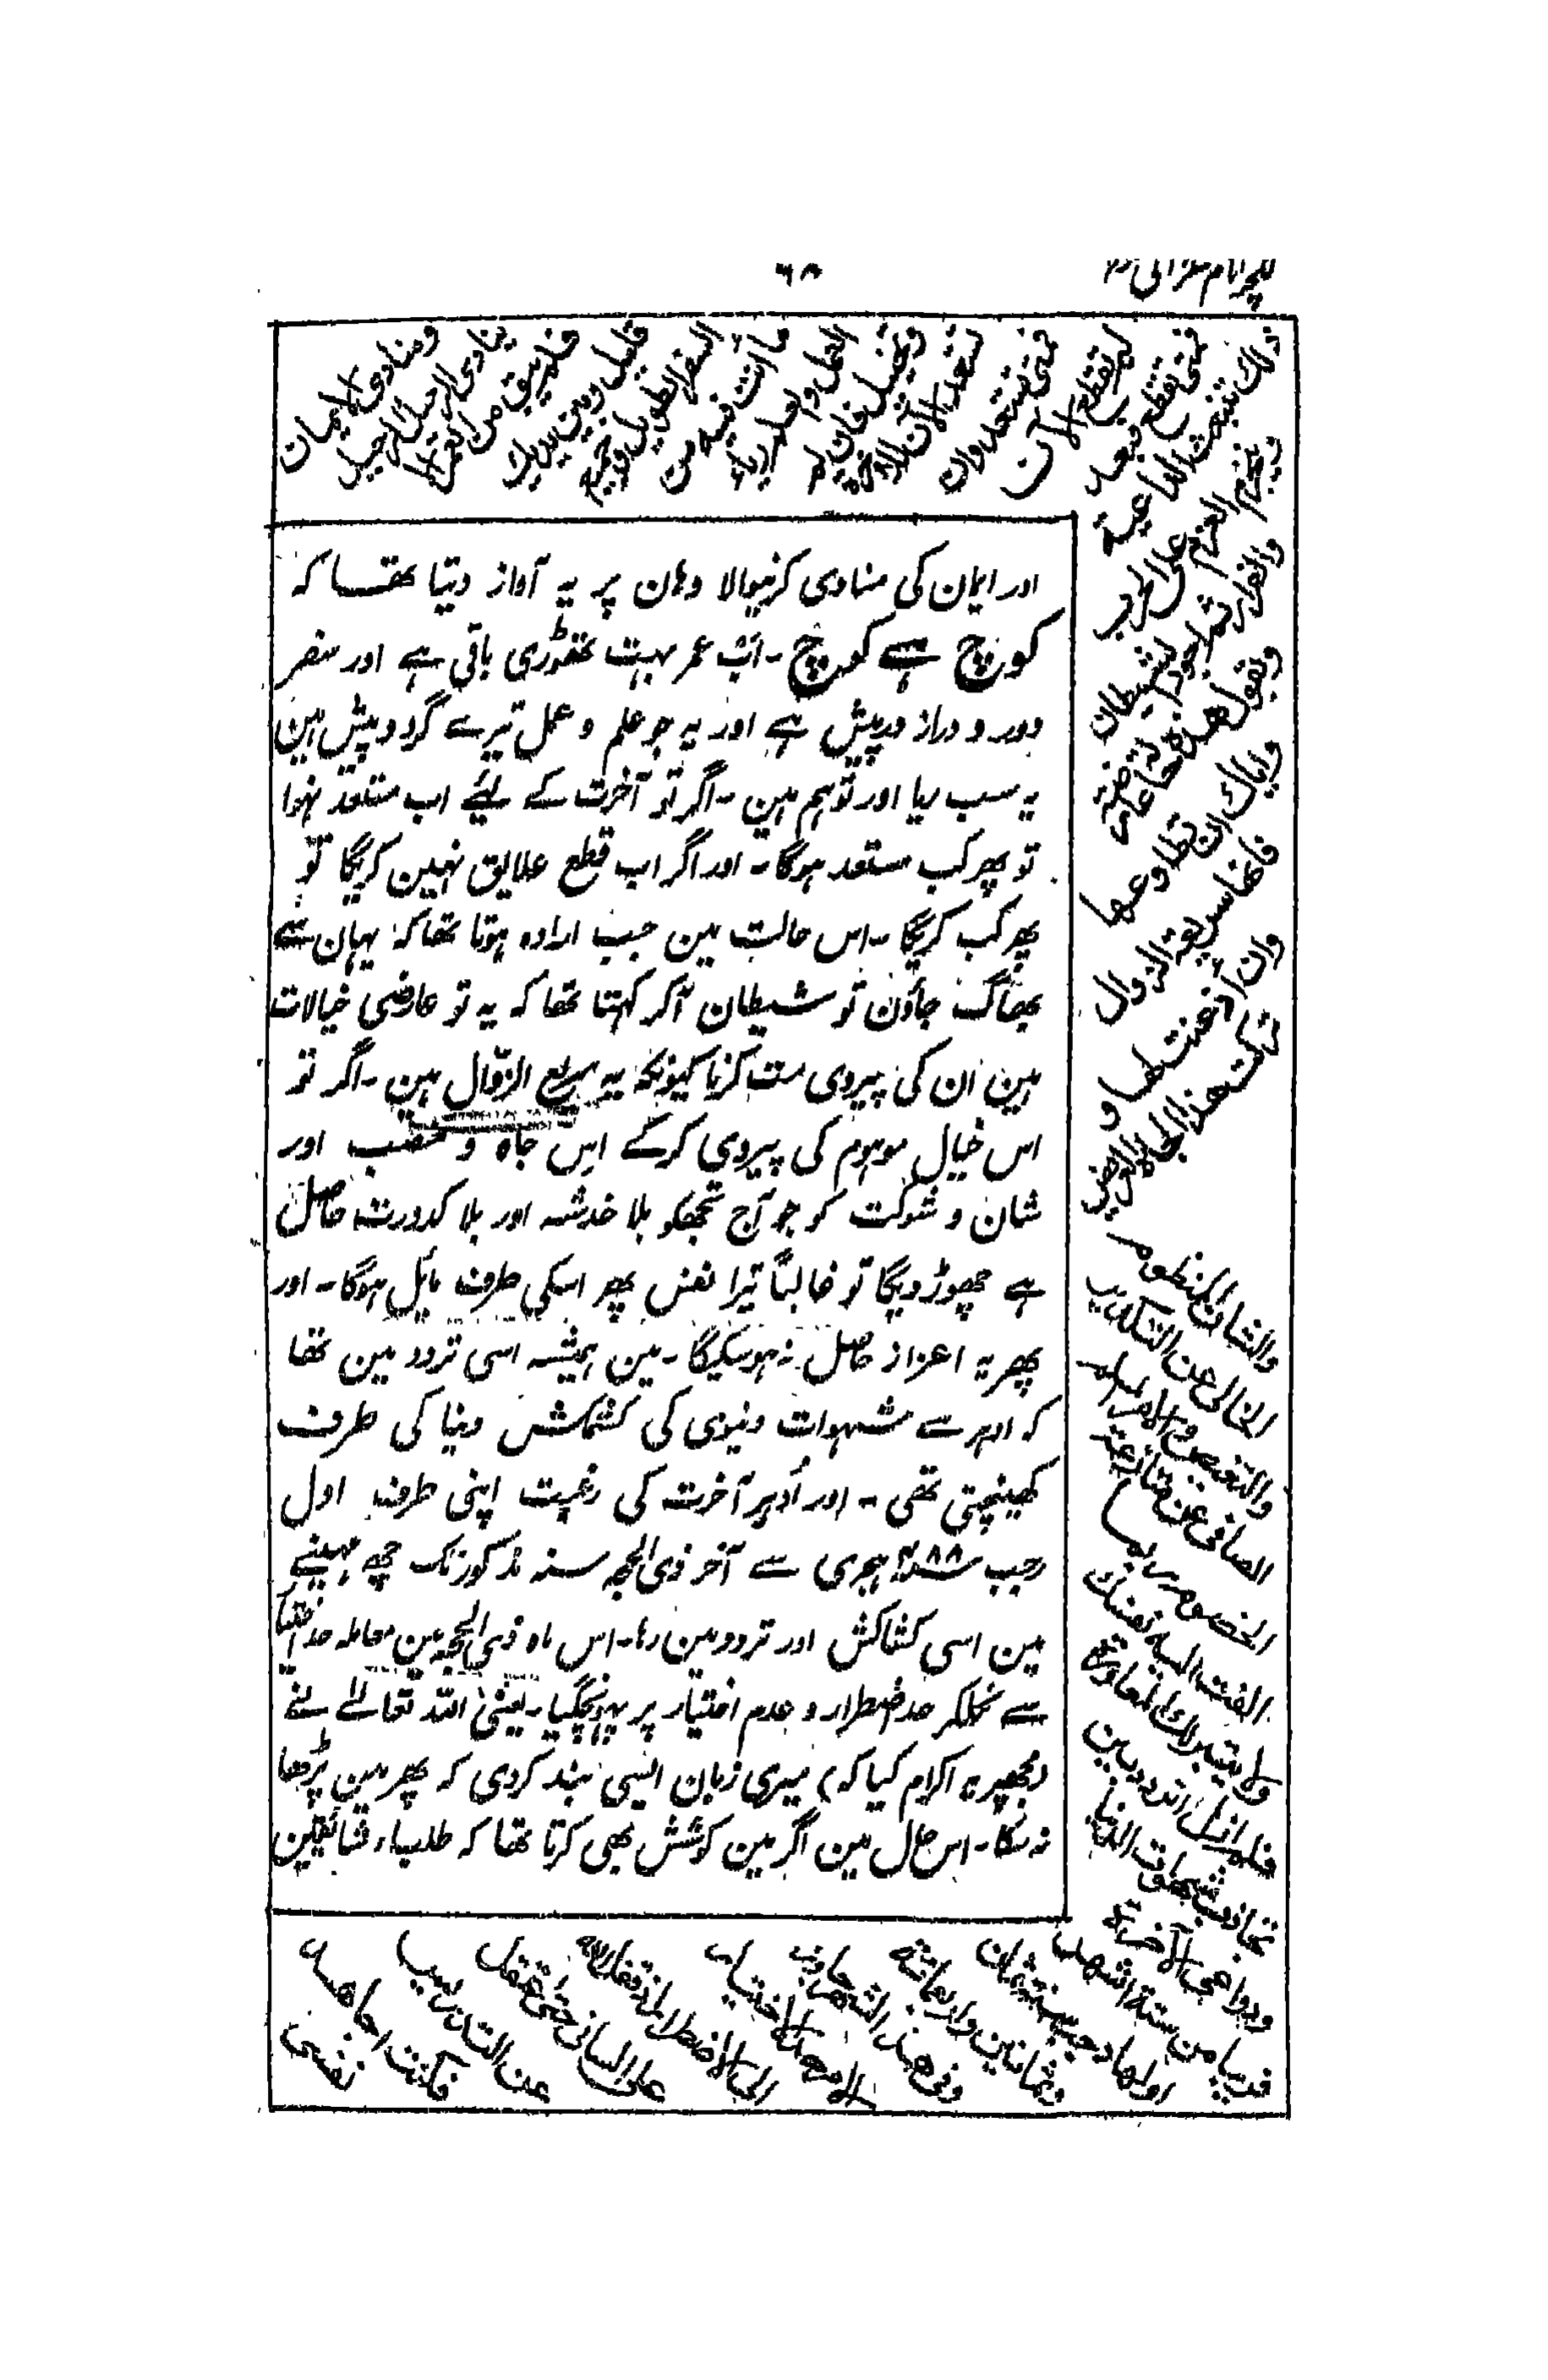 لکچر امام غزالی رح
٦٨
ومنادی الایمان
ینادی الرحیل الرحیل
فلم یبق من العمر الا
قلیل وبین یدیك
السفر الطویل وجمیع
ما انت فیه من
العمل والعلم ریاء
وتخییل فان لم
تستعد الآن للآخرة
فمتی تستعد وان
لم تقطع الآن
فمتی تقطع فبعد
ذلك تنبعث الداعیة
وینجزم العزم علی الهرب
والفرار ثم یعود الشیطان
ویقول هذه حالة عارضة
وایاك ان تطاوعها
فانها سریعة الزوال
وان اذعنت لها و
ترکت هذا الجاه العریض
والشان المنظوم
الخالی عن التکدیر
والتنغیص والامر المسلم
الصافی عن منازعة
الخصوم ربما
التفت الیه نفسك
ولا یتیسر لك المعاودة
فلم ازل اتردد بین
تجاذب شهوات الدنیا
ودواعی الآخرة
قریبا من ستة اشهر
اولها رجب سنة ثمان
وثمانین واربعمائة
وفی هذا الشهر جاوز
الامر حد الاختیار
الی الاضطرار اذ قفل الله
علی لسانی حتی اعتقل
عن التدریس
فکنت اجاهد
نفسی
اور ایمان کی منادی کرنیوالا وہان پر یہ آواز دیتا تھا کہ
کورچ ہے کورچ ۔ اب عمر بہت تھوڑی باقی ہے اور سفر
دور و دراز درپیش ہے اور یہ جو علم و عمل تیرے گرد و پیش ہین
یہ سب ریا اور توہم ہین ۔ اگر تو آخرت کے لیئے اب مستعد نہوا
تو پھر کب مستعد ہوگا ۔ اور اگر اب قطع علایق نہین کریگا تو
پھر کب کریگا ۔ اس حالت مین جب ارادہ ہوتا تھا کہ یہان سے
بھاگ جاؤن تو شیطان آکر کہتا تھا کہ یہ تو عارضی خیالات
ہین ان کی پیروی مت کرنا کیونکہ یہ سریع الزوّال ہین ۔ اگر تو
اس خیال موہوم کی پیروی کرکے اس جاہ و منصب اور
شان و شوکت کو جو آج تجھکو بلا خدشہ اور بلا کدورت حاصل
ہے چھوڑ دیگا تو غالباً تیرا نفس پھر اسکی طرف مایٔل ہوگا ۔ اور
پھر یہ اعزاز حاصل نہ ہوسکیگا ۔ مین ہمیشہ اسی تردد مین تھا
کہ ادہر سے شہوات دنیوی کی کشمکش دنیا کی طرف
کھینچتی تھی ۔ اور اُدہر آخرت کی رغبت اپنی طرف اول
رجب ۴۸۸؁ ہجری سے آخر ذی الحجہ سنہ مذکور تک چھ مہینے
مین اسی کشاکش اور تردد مین رہا ۔ اس ماہ ذی الحجہ مین معاملہ حد اختیار
سے نکلکر حد اضطرار و عدم اختیار پر پہونچگیا ۔ یعنی اللہ تعالے نے
(مجھپر یہ اکرام کیا کہ) میری زبان ایسی بند کردی کہ پھر مین پڑھا
نہ سکا ۔ اس حال مین اگر مین کوشش بھی کرتا تھا کہ طلباء شائقین